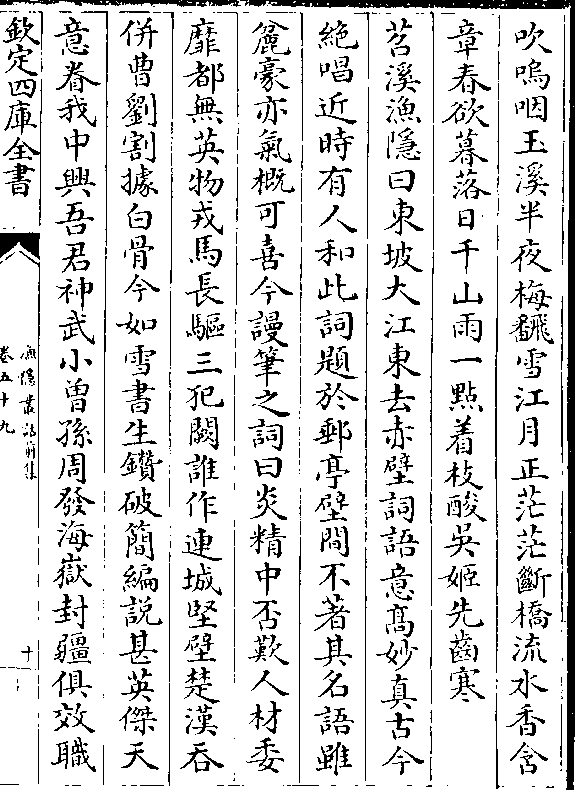 吹嗚咽玉溪半夜梅飜雪江月正茫茫斷橋流水香含
章春欲暮落日千山雨一點着枝酸吳姬先齒寒
苕溪漁隱曰東坡大江東去赤壁詞語意髙妙真古今
絶唱近時有人和此詞題於郵亭壁間不著其名語雖
麄豪亦氣概可喜今謾筆之詞曰炎精中否歎人材委
靡都無英物戎馬長驅三犯闕誰作連城堅壁楚漢吞
併曹劉割據白骨今如雪書生鑽破簡編説甚英傑天
意眷我中興吾君神武小曽孫周發海嶽封疆俱效職
欽定四庫全書
漁隱叢話前集
卷五十九
十